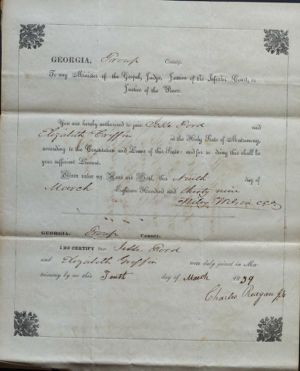 GEORGIA, Troup County.
To any Minister of the Gospel, Judge, Justice of the Inferior Court, or
Justice of the Peace.
You are hereby authorized to join Jesse Ford and
Elizabeth Griffin in the Holy State of Matrimony,
according to the Constitution and Laws of this State; and for so doing this shall be
your sufficient License.
Given under my Hand and Seal, this Ninth day of
March Eighteen Hundred and thirty nine
Wilson CCO
GEORGIA, Troup County.
I DO CERTIFY that Jesse Ford
and Elizabeth Griffin were duly joined in Ma-
trimony by me this day of March 1839
Charles Reagan